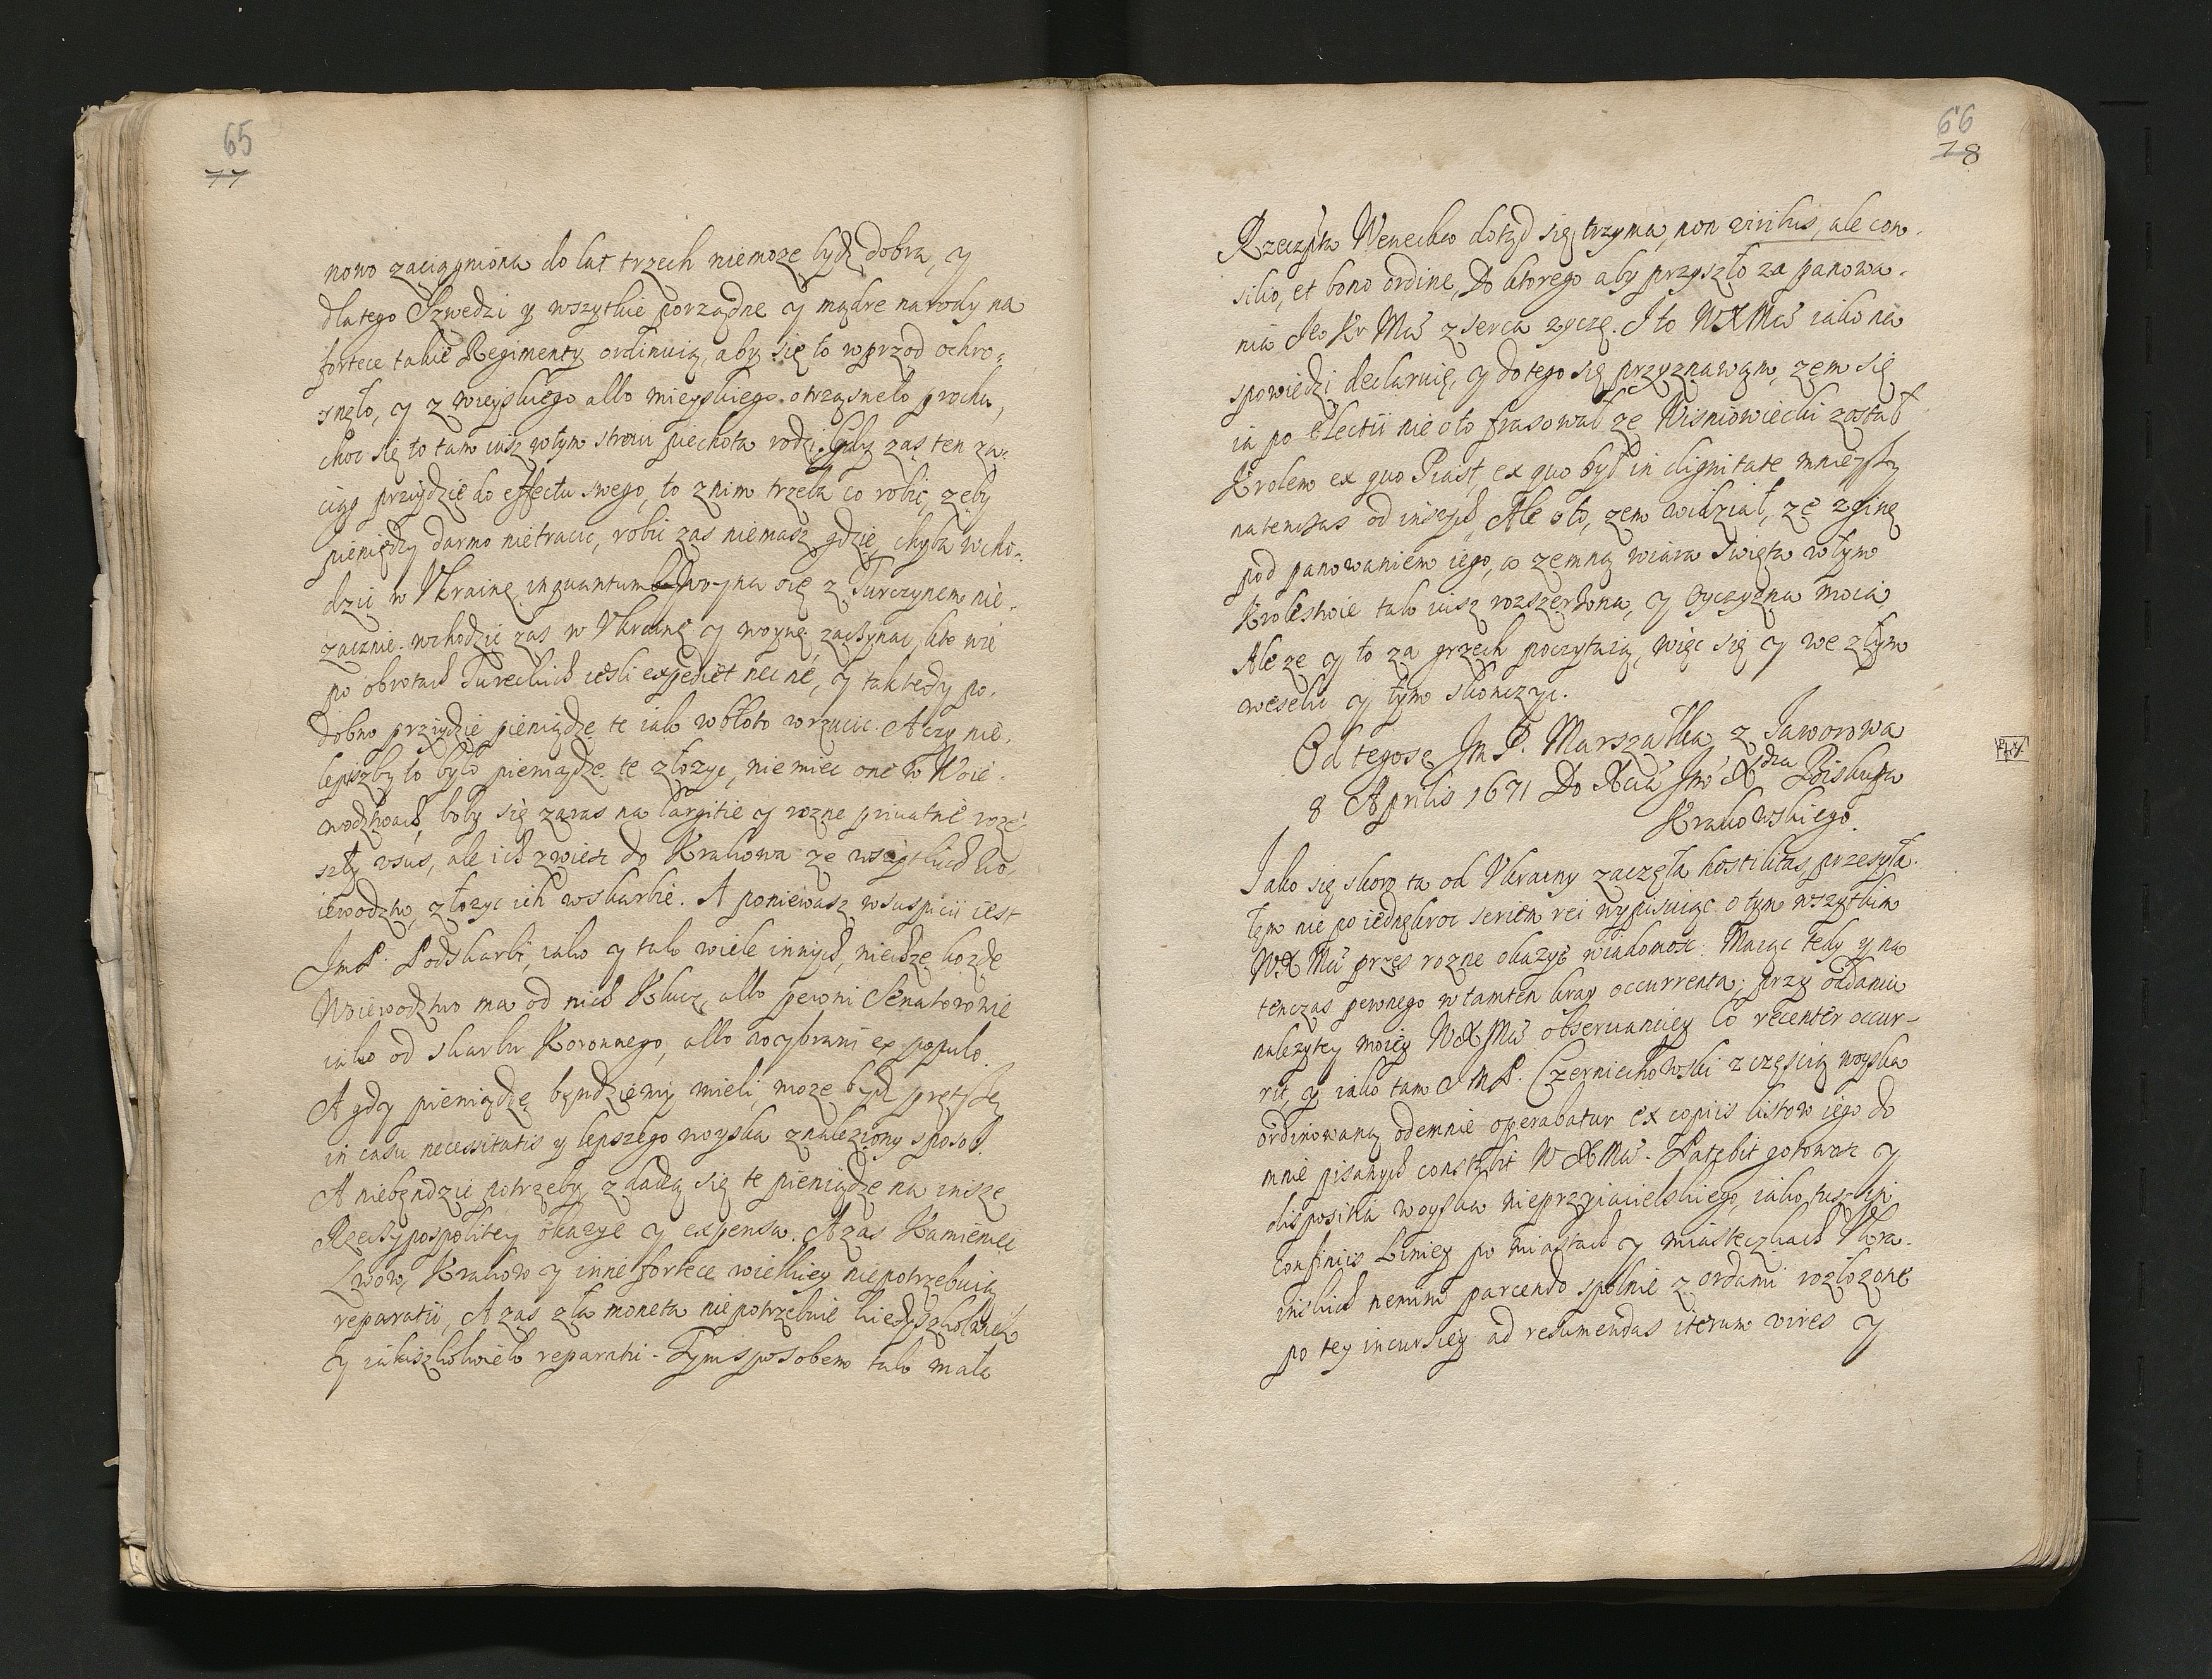 65
77
nowo zaciągniona do lat trzech niemoże bydź dobra, y
dlatego Szwedzi y wszytkie porządne y mądre narody na
fortece takie Regimenty ordinuią, aby się to wprzod ochro,
sneło, y z wieyskiego albo mieyskiego otrząsneło prochu,
choc się to tam iusz wtym stroiu piechota rodzi. Gdy zas ten za,
ciąg przyidzie do effectu swego, to znim trzeba co robic, zeby
pieniędzy darmo nietracic, robic zas niemasz gdzie, chyba wcho,
dzic w Vkrainę inquantum woyna się z Turczynem nie,
zacznie. wchodzic zas w Vkrainę y woynę zaczynac, kto wie
po obrotach Tureckich iesli expediet nec ne, y tak tedy po,
dobno przyidzie pieniądze te iako wbłoto wrzucic. Aczy nie,
lepiszby to było pieniądze te złozyc, niemiec one w Woie,
wodztwach, boby się zaras na largitie y rozne priuatne roze
szły vsus, ale ich zwiesc do Krakowa ze wszytkich Wo,
iewodztw, złozyc ich wskarbie. A poniewasz wsuspicii iest
Jmć P. Podskarbi, iako y tak wiele innych, niechze kozde
Woiewodztwo ma od nich Klucz, albo pewni Senatorowie
iako od skarbu Koronnego, albo wybrani ex populo.
A gdy pieniądze będziemy mieli, moze bydz prętszy
in casu necessitatis y lepszego woyska znaleziony sposob.
A niebędzie potrzeby, zdadzą się te pieniądze na insze
Rzeczypospolitey okazye y expensa. Azas Kamieniec
Lwow, Krakow y inne fortece wielkiey niepotrzebuią
reparatii, A zas zła moneta niepotrzebuie kiedyszkolwiek
y iakieszkolwiek reparatii. Tym sposobem tak mała
66
78
Rzeczpta Wenecka dotąd się trzyma, non viribus, ale con,
silio, et bono ordine, Do ktorego aby przyszło za panowa,
nia Je Kr Mci z serca zyczę. I to WXMci iako na
spowiedzi declaruię, y dotego się przyznawam, zem się
ia po Electii nie oto frasował ze Wisniowiecki został
Krolem ex quo Piast, ex quo był in dignitate mnieyszy
natenczas od inszych, Ale oto, zem widział, ze zginę
pod panowaniem iego, a zemną wiara Swięta wtym
Krolestwie tak iusz rozszerzona, y Oyczyzna moia,
Ale ze y to za grzech poczytaią, więc się y we złym
weselu y tym skonczyc.
Od tegosz Jm P. Marszałka z Jaworowa
8 Aprilis 1671 Do Xcia Jm Xdza Biskupa
Krakowskiego.
Iako się skoro ta od Vkrainy zaczęła hostilitas, przesyła,
łem nie po iednękroc seriem rei wypisuiąc o tym wszytkim
WX Mci przes rozne okazye wiadomosc. Maiąc tedy y na
tenczas pewnego w tamten kray occurrenta; przy oddaniu
nalezytey moiey WXMci obseruanciey Co recenter occur-
rit, y iako tam Jm P. Czerniechowski z częscią woyska
ordinowaną odemnie operabatur ex copiis listow iego do
mnie pisanych constabit WXMci. Patebit gotowosc y
dispositia woyska nieprzyiacielskiego, iako tusz in
confiniis Liniey po miastach y miasteczkach Vkra,
inskich nemini parcendo społnie z ordami rozłozone
po tey incursiey ad resumendas iterum vires y